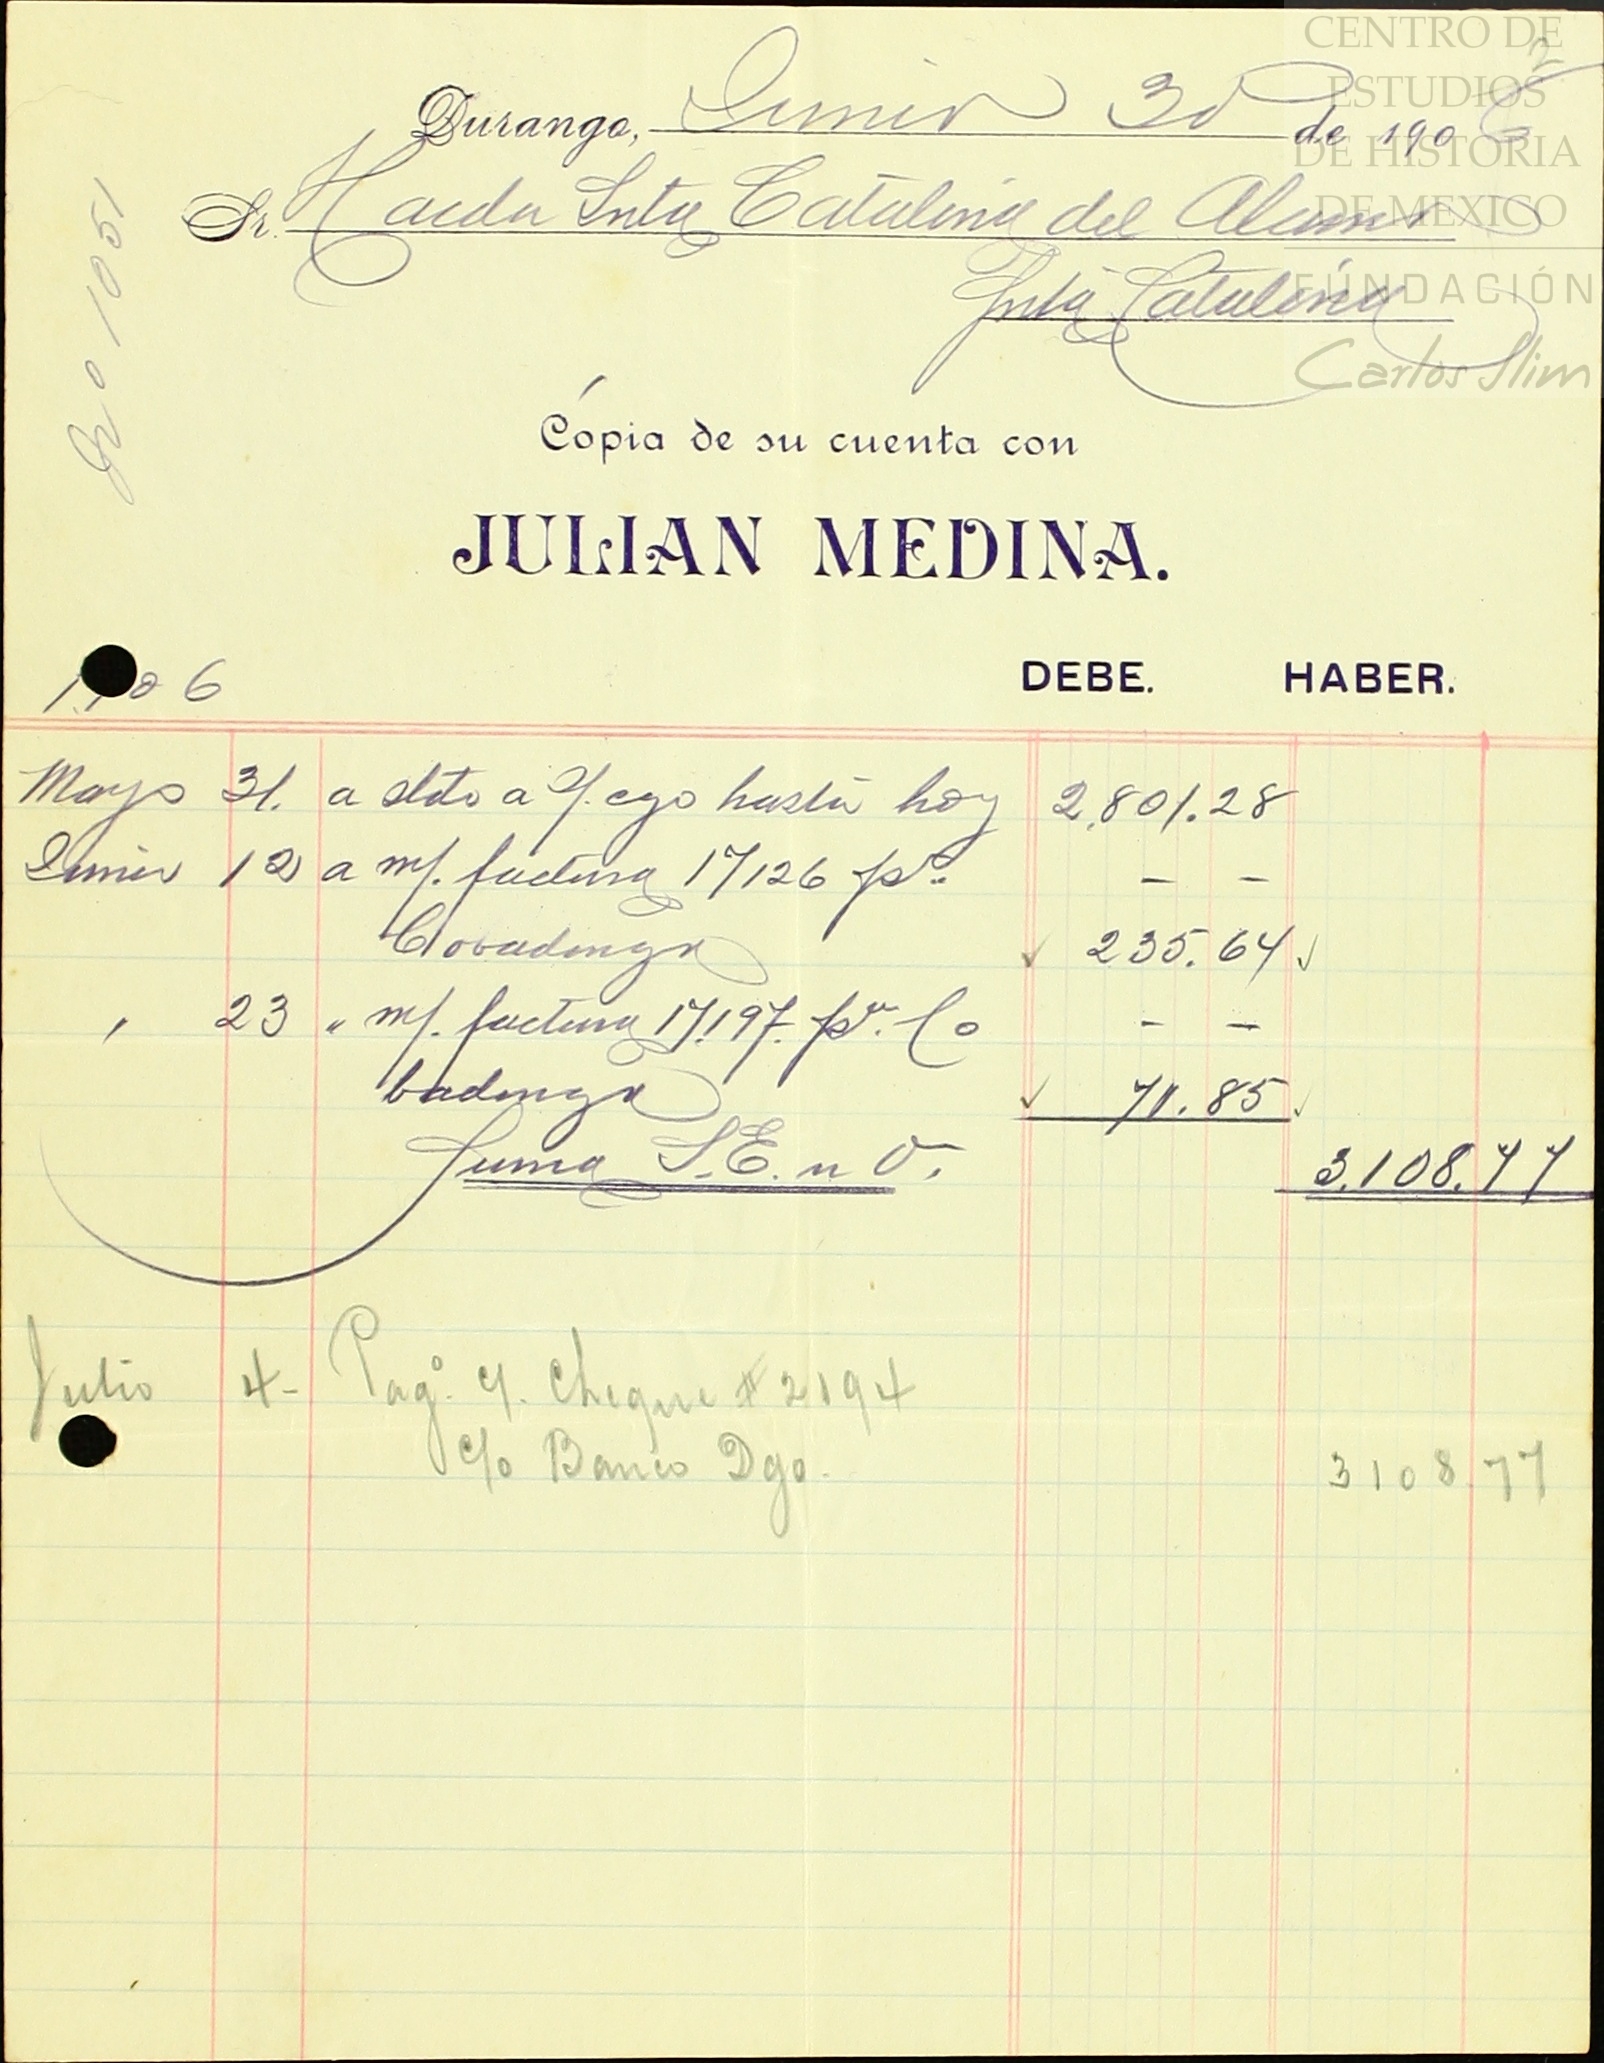 CENTRO DE
ESTUDIOS
DE HISTORIA
DE MEXICO
FUNDACIÓN
Carlos Slim
2
Durango, Junio 30 de 1906
Sr. Hacda Snta Catalina del Alamo
Snta Catalina
10051
Cópia de su cuenta con
JULIAN MEDINA.
1906 DEBE. HABER.
Mayo 31. a sldo a /. cgo hasta hoy 2,801.28
Junio 12 a m/. factura 17126 pa. — —
Covadonga 235.64
" 23 " m/. factura 17197. pa. Co — —
badonga 71.85
Suma S.E. u O. 3,108.77
Julio 4- Pagº. c/. Cheque # 2194
c/o Banco Dgo. 3108.77